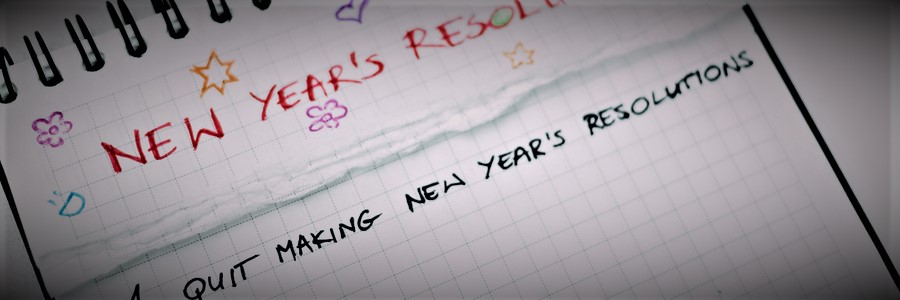 NEW YEAR'S
QUIT MAKING NEW YEAR'S RESOLUTIONS